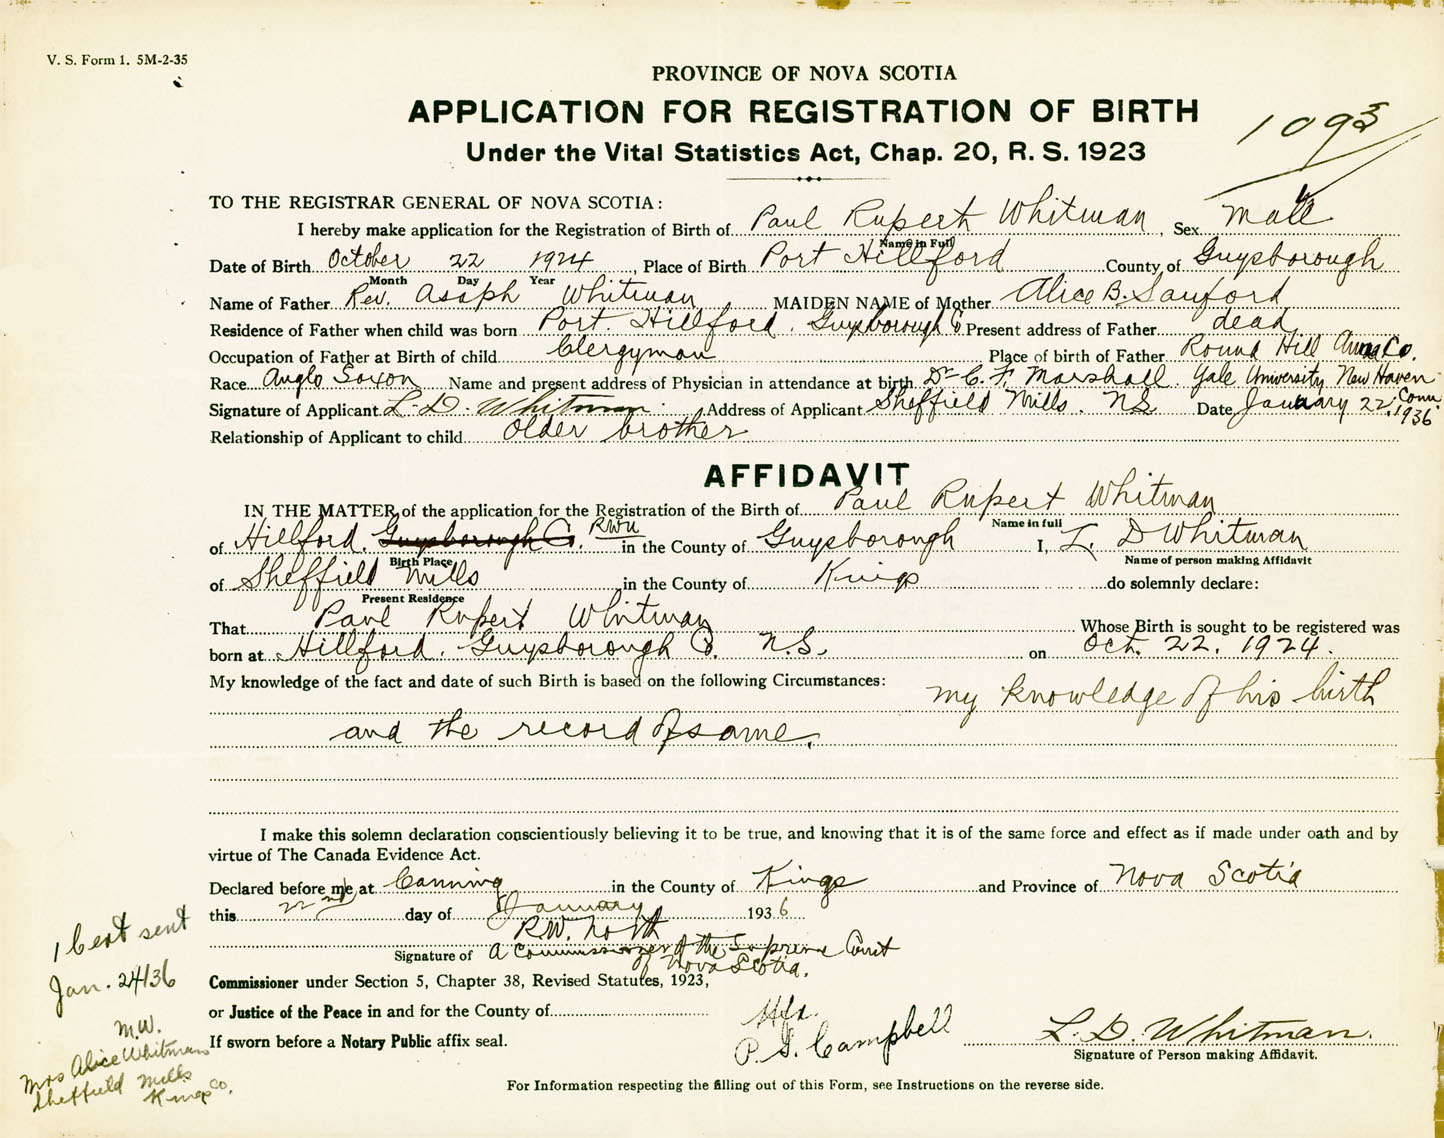 V. S. Form 1. 5M-2-35
PROVINCE OF NOVA SCOTIA
APPLICATION FOR REGISTRATION OF BIRTH
1093
Under the Vital Statistics Act, Chap. 20, R. S. 1923
TO THE REGISTRAR GENERAL OF NOVA SCOTIA:
I hereby make application for the Registration of Birth of Paul Rupert Whitman, Sex Male
Name in Full
Date of Birth October 22 1924, Place of Birth Port Hillford County of Guysborough
Month Day Year
Name of Father Rev. Asaph Whitman MAIDEN NAME of Mother Alice B. Sanford
Residence of Father when child was born Port. Hillford. Guysborough Co Present address of Father dead
Occupation of Father at Birth of child Clergyman Place of birth of Father Round Hill Anna Co.
Race Anglo Saxon Name and present address of Physician in attendance at birth Dr C. F. Marshall. Yale University New Haven Conn.
Signature of Applicant L. D. Whitman Address of Applicant Sheffield Mills. NS Date January 22 1936
Relationship of Applicant to child older brother
AFFIDAVIT
IN THE MATTER of the application for the Registration of the Birth of Paul Rupert Whitman
Name in full
of Hillford. Guysborough Co. RWN in the County of Guysborough I, L. D Whitman
Birth Place Name of person making Affidavit
of Sheffield Mills in the County of Kings do solemnly declare:
Present Residence
That Paul Rupert Whitman Whose Birth is sought to be registered was
born at Hillford. Guysborough Co. N.S. on Oct. 22. 1924.
My knowledge of the fact and date of such Birth is based on the following Circumstances: my knowledge of his birth
and the record of same.
I make this solemn declaration conscientiously believing it to be true, and knowing that it is of the same force and effect as if made under oath and by
virtue of The Canada Evidence Act.
Declared before me at Canning in the County of Kings and Province of Nova Scotia
this 22nd day of January 1936
R.W. North
Signature of A Commissioner of the Supreme Court
of Nova Scotia.
Commissioner under Section 5, Chapter 38, Revised Statutes, 1923,
or Justice of the Peace in and for the County of
If sworn before a Notary Public affix seal.
Hfx.
P. S. Campbell
L. D. Whitman.
Signature of Person making Affidavit.
For Information respecting the filling out of this Form, see Instructions on the reverse side.
1 Cert sent
Jan. 24/36
M.W.
Mrs Alice Whitman
Sheffield Mills
Kings Co.